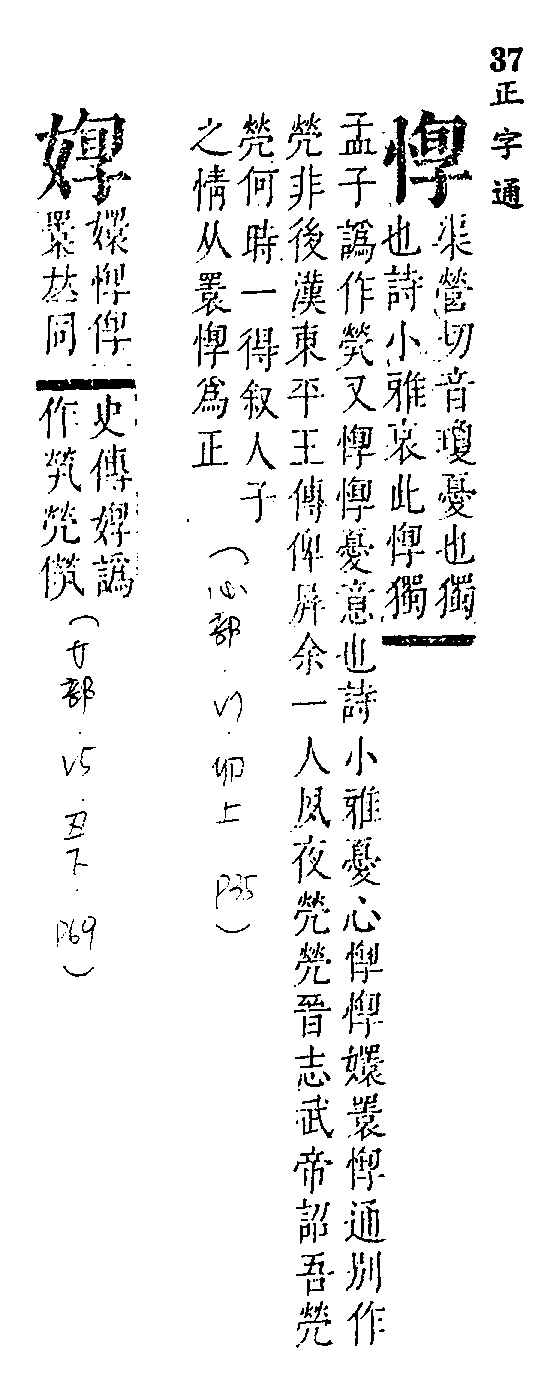 37 正字通
惸
渠營切音瓊憂也獨
也詩小雅哀此惸獨
孟子譌作煢又惸惸憂意也詩小雅憂心惸惸嬛睘惸通別作
焭非後漢東平王傳俾屛余一人夙夜焭焭晉志武帝詔吾焭
焭何時一得叙人子
之情从睘惸爲正
(心部.V7.卯上 P35)
嬛惸
睘𠀤同
史傳 譌
作煢焭儝
(女部.V5.丑下.P69)